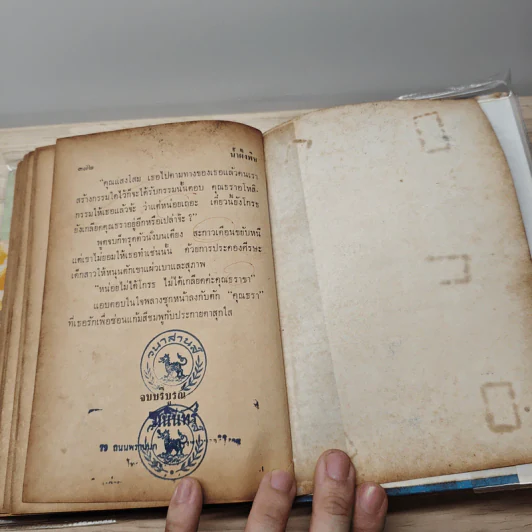 ๒๘๒
น้ำผึ้งขม
"คุณแสงโสม เธอไปตามทางของเธอแล้วคนเรา
สร้างกรรมใดไว้ก็จะได้รับกรรมนั้นตอบ คุณธราอโหสิ-
กรรมให้เธอแล้วจ้ะ ว่าแต่หน่อยเถอะ เดี๋ยวนี้ยังโกรธ
ยังเกลียดคุณธราอยู่อีกหรือเปล่าจ๊ะ ?"
พูดจบก็ทรุดตัวนั่งบนเตียง สะกาวเดือนขยับหนี
แต่เขาไม่ยอมให้เธอทำเช่นนั้น ด้วยการประคองศีรษะ
เด็กสาวให้หนุนตักเขาแผ่วเบาและสุภาพ
"หน่อยไม่ได้โกรธ ไม่ได้เกลียดค่ะคุณธราขา"
แอบตอบในใจพลางซุกหน้าลงกับตัก "คุณธรา"
ที่เธอรักเพื่อซ่อนแก้มสีชมพูกับประกายตาสุกใส
วนาสายส์
จบบริบูรณ์
ถนนพระ